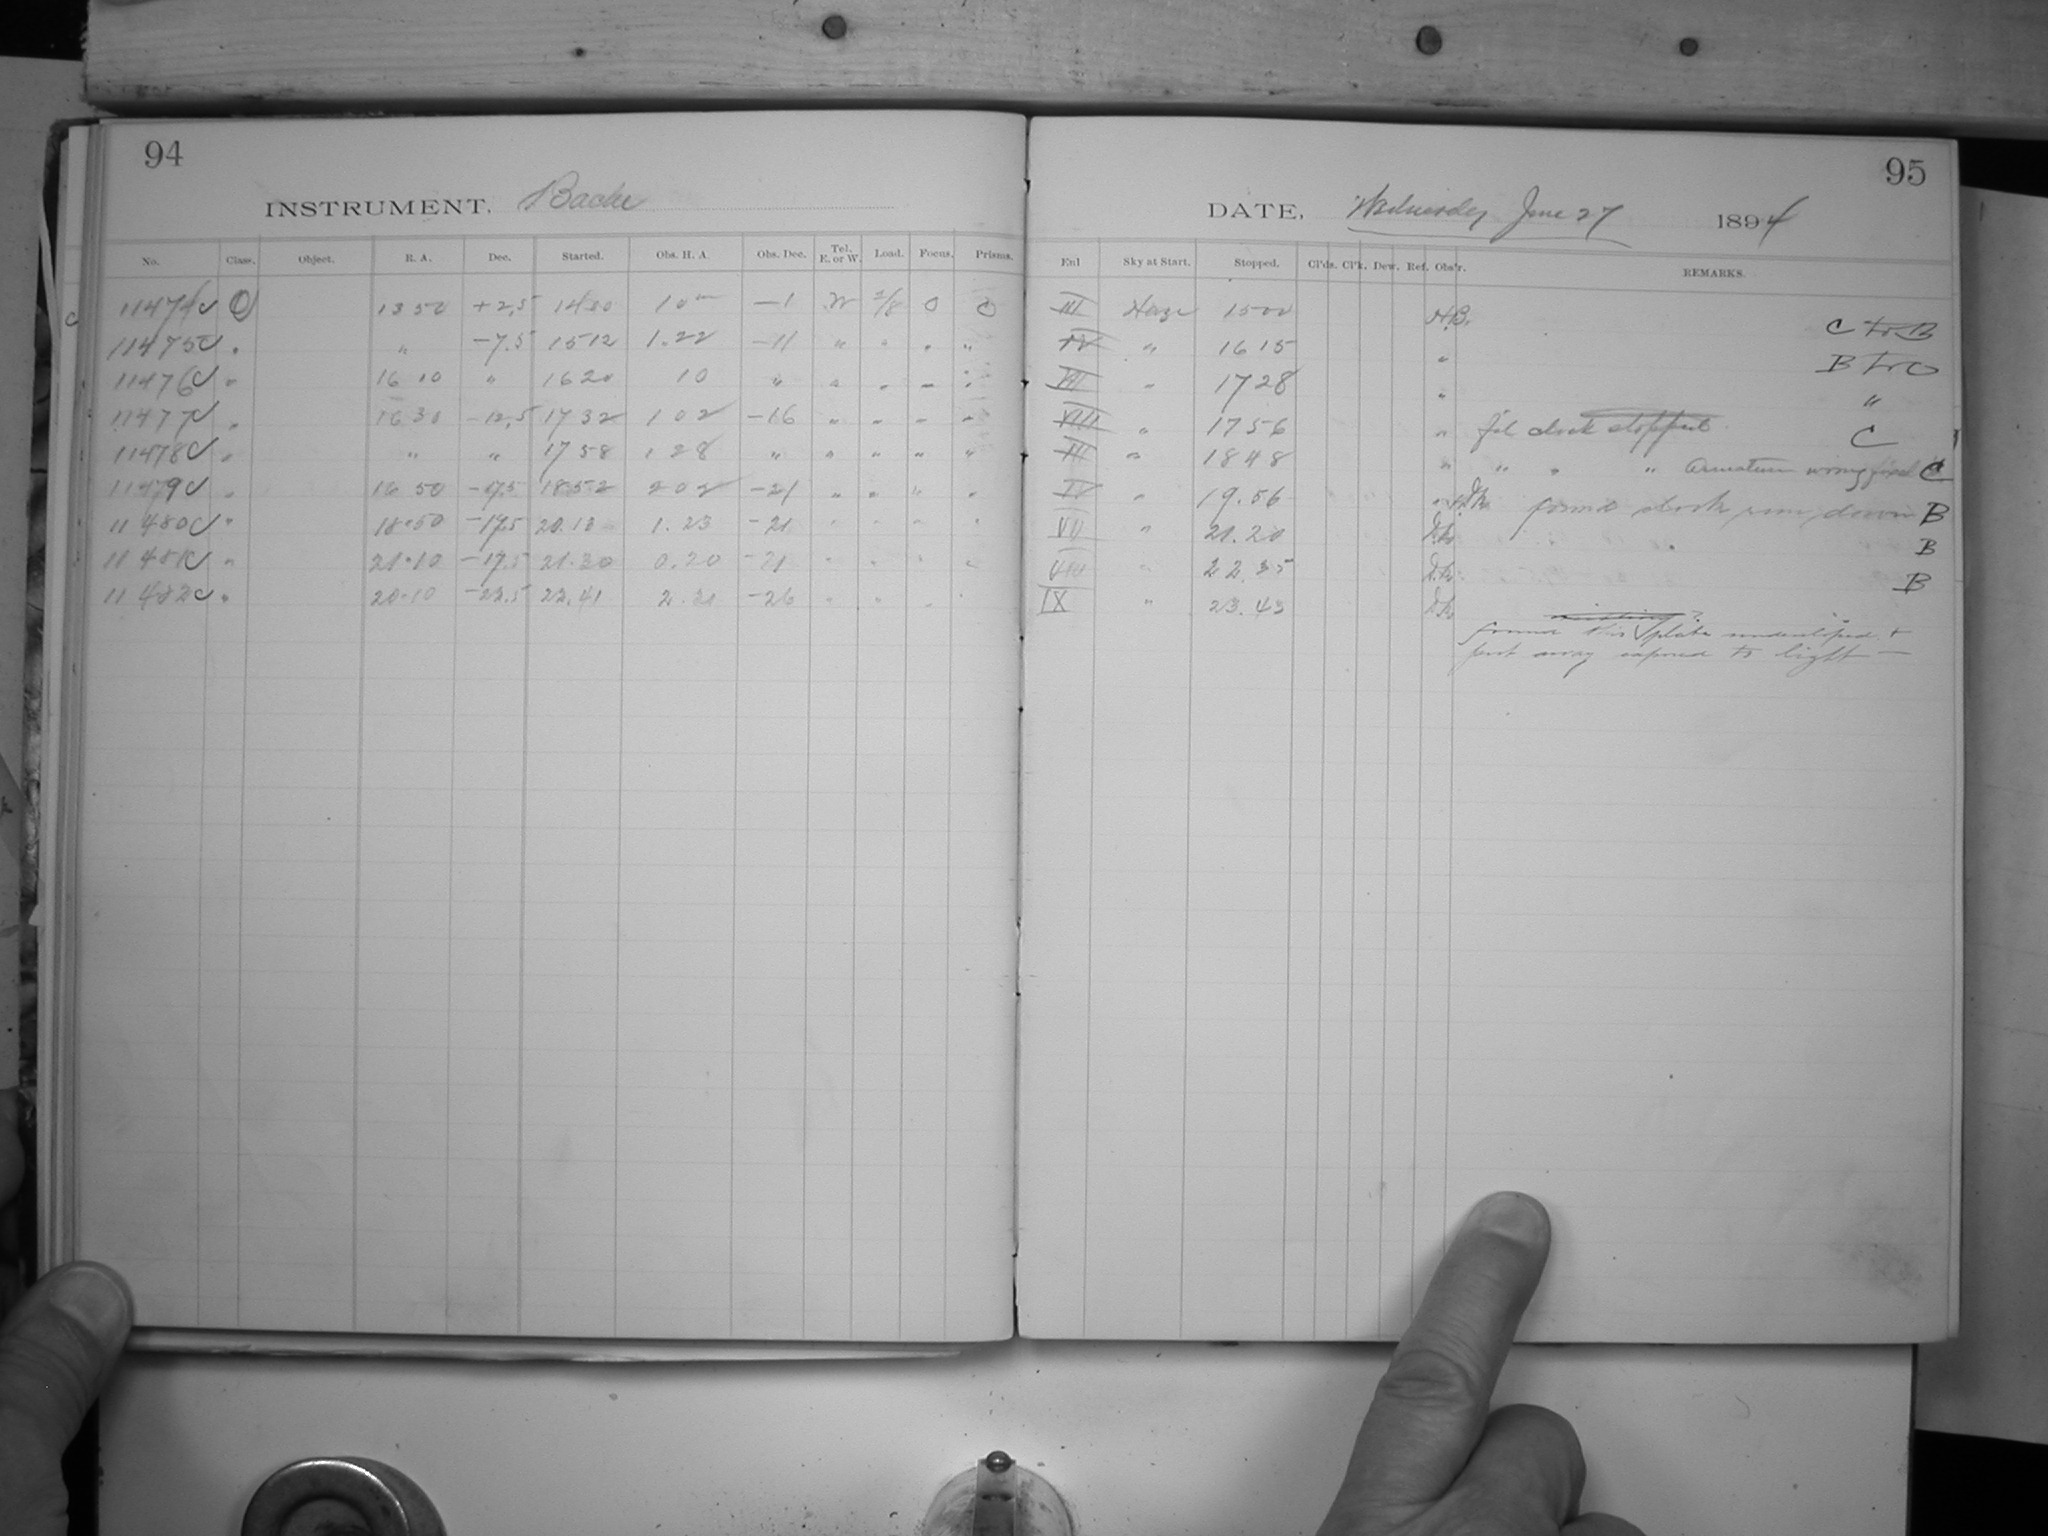 94
95
INSTRUMENT. Bache
DATE, Wednesday June 27 1894
No. Class. Object. R. A. Dec. Started. Obs. H. A. Obs. Dec. Tel. E. or W. Load. Focus. Prisms. Enl Sky at Start. Stopped. Cl'ds. Cl'k. Dew. Ref. Obs'r. REMARKS.
11474 O 13 50 +2.5 1430 10m -1 W 2/8 O O III Haze 1500 H.B. C to B
11475 " " -7.5 1512 1.22 -11 " " " " IV " 1615 " B to O
11476 " 16 10 " 1620 10 " " " " " " 1728 " "
11477 " 16 30 -12.5 1732 1 02 -16 " " " " " 1756 " clock stopped C
11478 " " " 1758 1 28 " " " " " " 1848 " " " " Armature wrong C
11479 " 16 50 -17.5 1852 2 02 -21 " " " " IV " 19.56 " found clock run down B
11480 " 18.50 -17.5 20.13 1.23 -21 " " " " VII " 21.20 B
11481 " 21.10 -17.5 21.30 0.20 -21 " " " " VIII " 22.35 B
11482 " 20.10 -22.5 22.41 2.31 -26 " " " " IX " 23.43
missing?
found this plate undeveloped &
put away exposed to light —